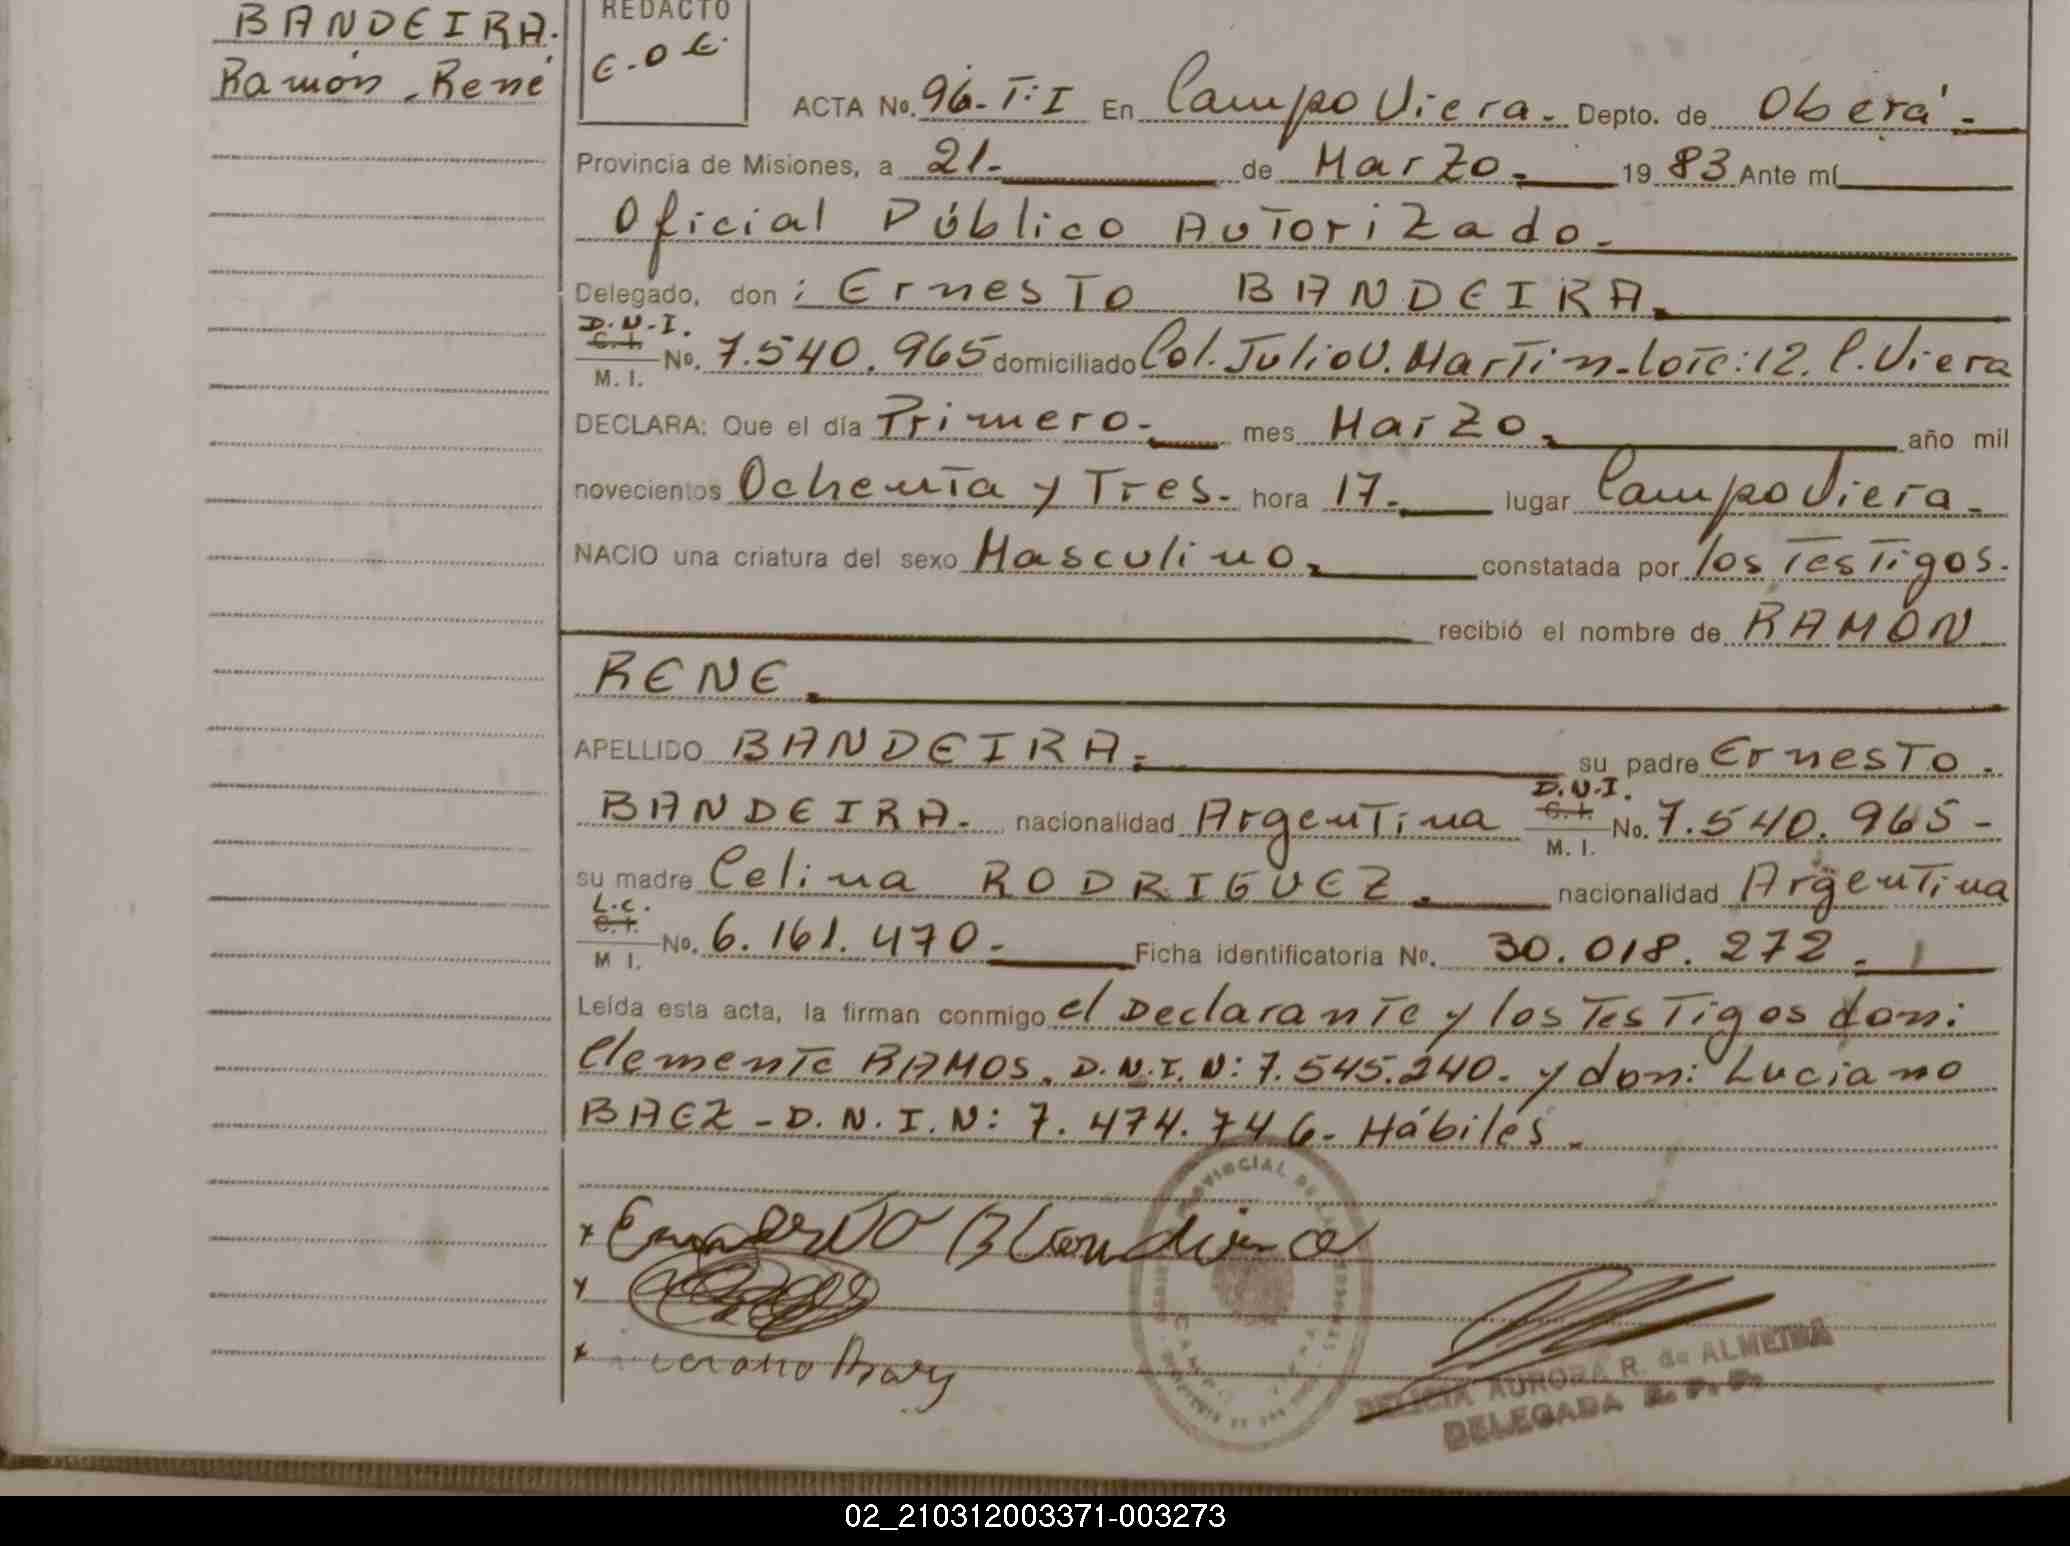 BANDEIRA.
Ramón René
REDACTO
E.O.E.
ACTA No. 96-T:I En Campo Viera. Depto. de Oberá.
Provincia de Misiones, a 21. de Marzo. 1983 Ante mí
Oficial Público Autorizado.
Delegado, don: Ernesto BANDEIRA.
D.N.I.
C.I.
M. I.
No. 7.540.965 domiciliado Col. Julio U. Martin. Lote: 12. C. Viera
DECLARA: Que el día Primero. mes Marzo. año mil
novecientos Ochenta y Tres. hora 17. lugar Campo Viera.
NACIO una criatura del sexo Masculino. constatada por los Testigos.
recibió el nombre de RAMÓN
RENE.
APELLIDO BANDEIRA. su padre Ernesto.
BANDEIRA. nacionalidad Argentina D.N.I. C.I. M. I. No. 7.540.965-
su madre Celina RODRIGUEZ. nacionalidad Argentina
L.C.
C.I.
M I.
No. 6.161.470. Ficha identificatoria No. 30.018.272.
Leída esta acta, la firman conmigo el Declarante y los Testigos don:
Clemente RAMOS. D.N.I.N: 7.545.240. y don: Luciano
BAEZ - D.N.I.N: 7.474.746. Hábiles.
PROVINCIAL DE LAS
DELICIA AURORA R. de ALMEIDA
DELEGADA
02_210312003371-003273